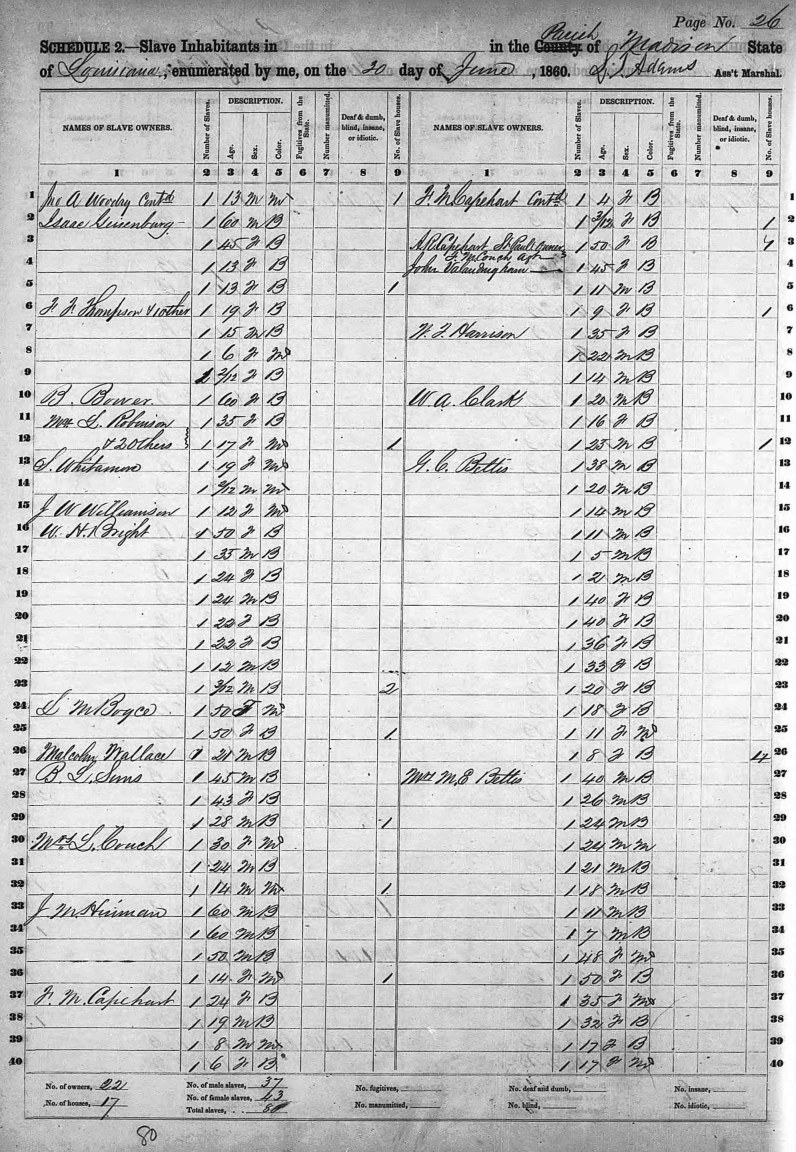 Page No. 26
SCHEDULE 2.—Slave Inhabitants in in the County Parish of Madison State
of Louisiana, enumerated by me, on the 20 day of June, 1860. Adams Ass't Marshal.
NAMES OF SLAVE OWNERS. Number of Slaves. DESCRIPTION. Age. Sex. Color. Fugitives from the State. Number manumitted. Deaf & dumb, blind, insane, or idiotic. No. of Slave houses. NAMES OF SLAVE OWNERS. Number of Slaves. DESCRIPTION. Age. Sex. Color. Fugitives from the State. Number manumitted. Deaf & dumb, blind, insane, or idiotic. No. of Slave houses.
1 2 3 4 5 6 7 8 9 1 2 3 4 5 6 7 8 9
1 Jno A Woodry Contd 1 13 M M 1 F. M. Capehart Contd 1 4 F B 1
2 Isaac 1 60 M B 1 3/12 F B 1 2
3 1 45 F B A R Capehart St Paul owner 1 50 F B 3
F. M. Couch agt
4 1 13 F B John 1 45 F B 4
5 1 13 F B 1 1 11 M B 5
6 F. F. Thompson & 1 other 1 19 F B 1 9 F B 1 6
7 1 15 M B Harrison 1 35 F B 7
8 1 6 F M 1 22 M B 8
9 1 2/12 F B 1 14 M B 9
10 B. Bower 1 60 F B W. A. Clark 1 20 M B 10
11 L. Robinson 1 35 F B 1 16 F B 11
12 & 2 others 1 17 F M 1 1 23 M B 1 12
13 S. Whitamore 1 19 F M G. C. Bettis 1 38 M B 13
14 1 M M 1 20 M B 14
15 J W Williamson 1 12 F M 1 14 M B 15
16 W. H. Bright 1 50 F B 1 11 M B 16
17 1 35 M B 1 5 M B 17
18 1 24 F B 1 2 M B 18
19 1 24 M B 1 40 F B 19
20 1 22 F B 1 40 F B 20
21 1 22 F B 1 36 F B 21
22 1 12 M B 1 33 F B 22
23 1 3/12 M B 2 1 20 F B 23
24 M Boyce 1 50 F M 1 18 F B 24
25 1 50 F B 1 1 11 F M 25
26 Malcolm Wallace 1 21 M B 1 8 F B 4 26
27 B. L. Sims 1 45 M B Mrs M. E Bettis 1 40 M B 27
28 1 43 F B 1 26 M B 28
29 1 28 M B 1 1 24 M B 29
30 Mrs L. Couch 1 30 F M 1 24 M M 30
31 1 24 M B 1 21 M B 31
32 1 14 M M 1 1 18 M B 32
33 J M Hinman 1 60 M B 1 11 M B 33
34 1 60 M B 1 7 M B 34
35 1 50 M B 1 48 F M 35
36 1 14 F M 1 1 50 F B 36
37 F. M. Capehart 1 24 F B 1 35 F M 37
38 1 19 M B 1 32 F B 38
39 1 8 M M 1 17 F B 39
40 1 6 F B 1 17 F M 40
No. of owners, 22 No. of male slaves, 37 No. fugitives, No. deaf and dumb, No. insane,
No. of houses, 17 No. of female slaves, 43 No. manumitted, No. blind, No. idiotic,
Total slaves, 80
80